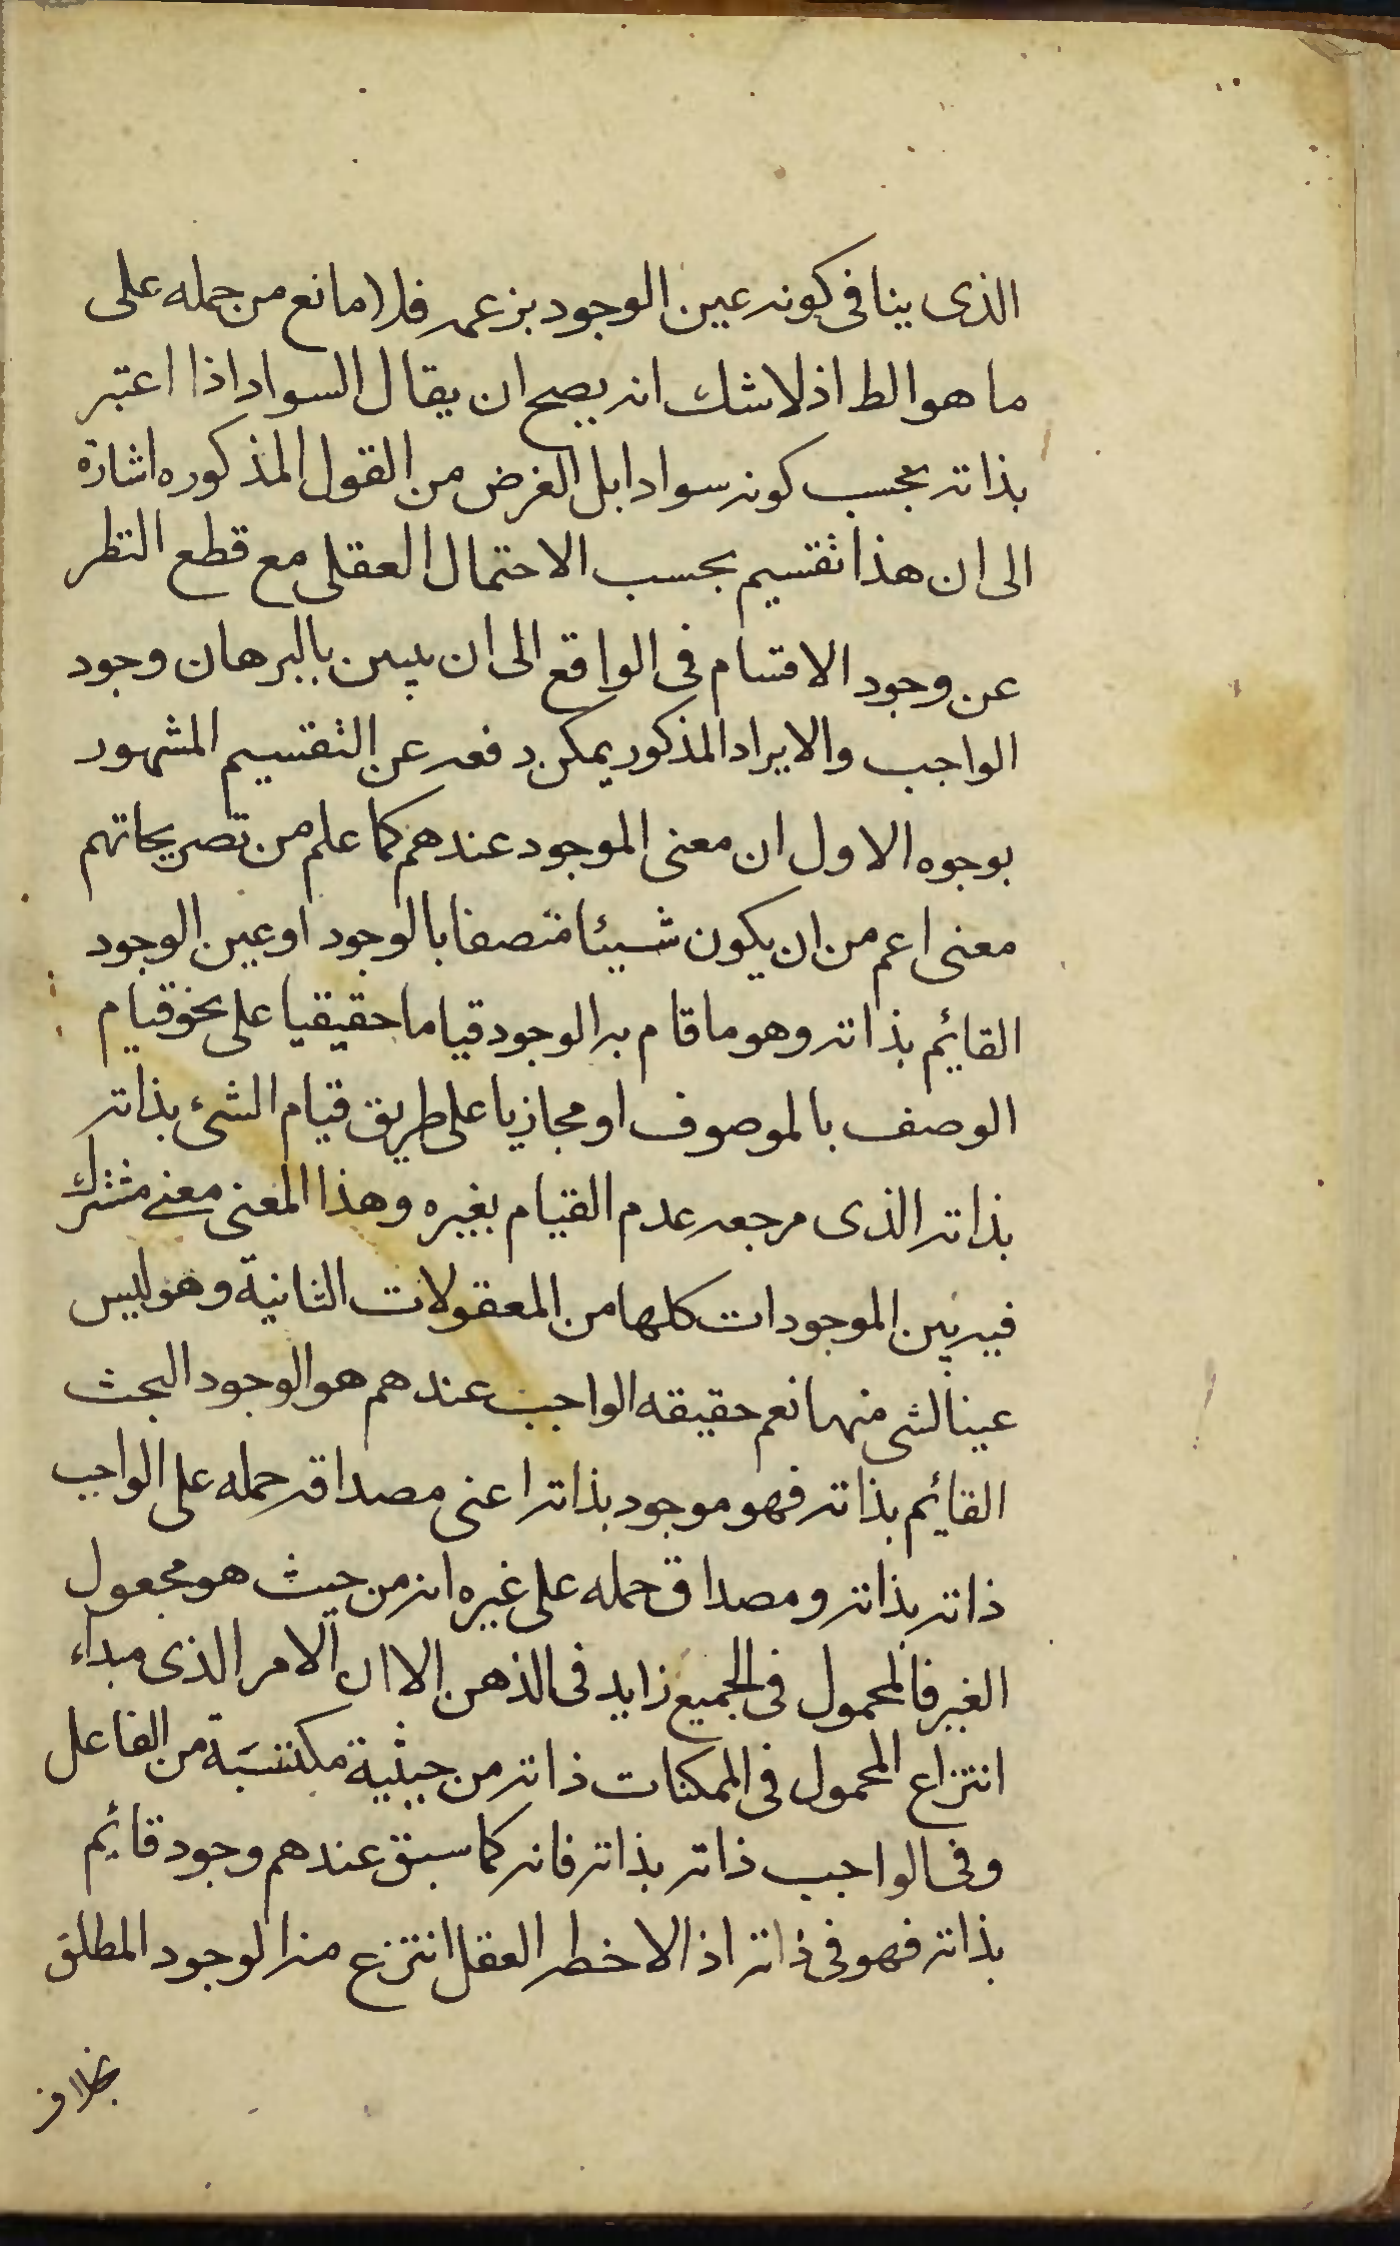 الذى ينافى كونه عين الوجود بزعمه فلا مانع من حمله على
ما هو الظ اذ لا شك انه يصح ان يقال السواد اذا اعتبر
بذاته بحسب كونه سوادا بل الغرض من القول المذكوره اشارة
الى ان هذا تقسيم بحسب الاحتمال العقلى مع قطع النظر
عن وجود الاقسام فى الواقع الى ان يبين بالبرهان وجود
الواجب والايراد المذكور يمكن دفعه عن التقسيم المشهور
بوجوه الاول ان معنى الموجود عندهم كما علم من تصريحاتهم
معنى اعم من ان يكون شيئا متصفا بالوجود او عين الوجود
القائم بذاته وهو ما قام به الوجود قياما حقيقيا على نحو قيام
الوصف بالموصوف او مجازيا على طريق قيام الشئ بذاته
بذاته الذى مرجعه عدم القيام بغيره وهذا المعنى معنى مشترك
فيه بين الموجودات كلها من المعقولات الثانية وهو ليس
عينا لشى منها نعم حقيقه الواجب عندهم هو الوجود البحث
القائم بذاته فهو موجود بذاته اعنى مصداقه حمله على الواجب
ذاته بذاته ومصداق حمله على غيره انه من حيث هو مجعول
الغير فالمحمول فى الجميع زايد فى الذهن الا ان الامر الذى مبداء
انتزاع المحمول فى الممكنات ذاته من حيثية مكتسبة من الفاعل
وفى الواجب ذاته بذاته فانه كما سبق عندهم وجود قائم
بذاته فهو فى ذاته اذا لاخطه العقل انتزع منه الوجود المطلق
بخلاف